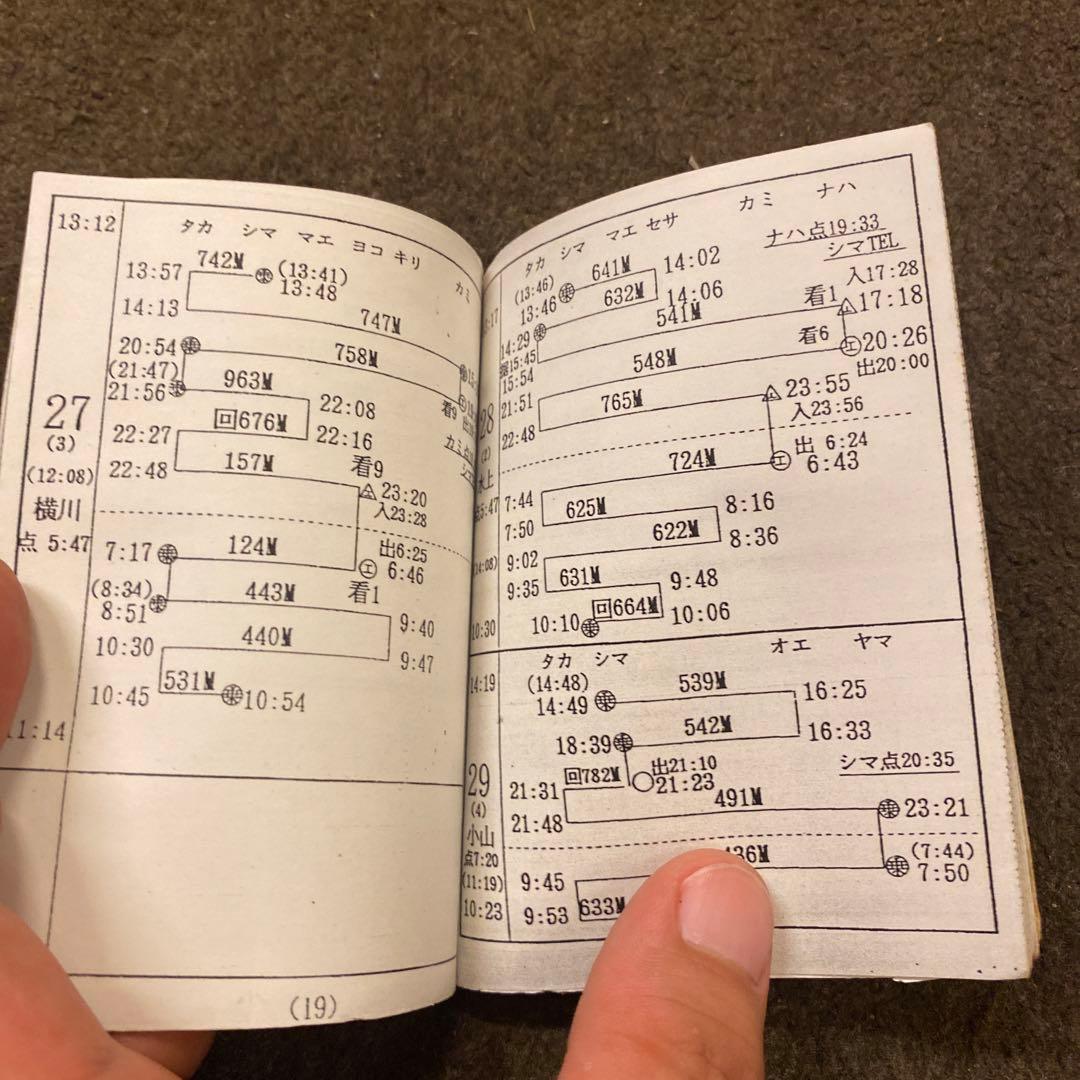 13:12
タカ シマ マエ ヨコ キリ カミ
742M
(13:41)
13:57
13:48
14:13
747M
20:54
758M
(21:47)
21:56
963M
22:08
看9
27
回676M
22:16
(3)
22:27
157M
看9
(12:08)
22:48
23:20
入23:28
横川
点 5:47
7:17
124M
出6:25
6:46
(8:34)
443M
看1
8:51
9:40
10:30
440M
9:47
10:45
531M
10:54
11:14
(19)
タカ シマ マエ セサ カミ ナハ
ナハ点19:33
シマTEL
(13:46)
641M
14:02
入17:28
13:46
632M
14:06
看1
17:18
14:29
541M
15:45
看6
20:26
15:54
548M
出20:00
21:51
765M
23:55
28
入23:56
22:48
(2)
出 6:24
水上
724M
6:43
5:47
7:44
625M
8:16
7:50
622M
8:36
9:02
9:35
631M
9:48
回664M
10:30
10:10
10:06
タカ シマ オエ ヤマ
14:19
(14:48)
539M
16:25
14:49
542M
16:33
18:39
シマ点20:35
回782M
出21:10
21:23
29
21:31
491M
23:21
(4)
21:48
小山
点7:20
436M
(7:44)
7:50
(11:19)
9:45
10:23
9:53
633M